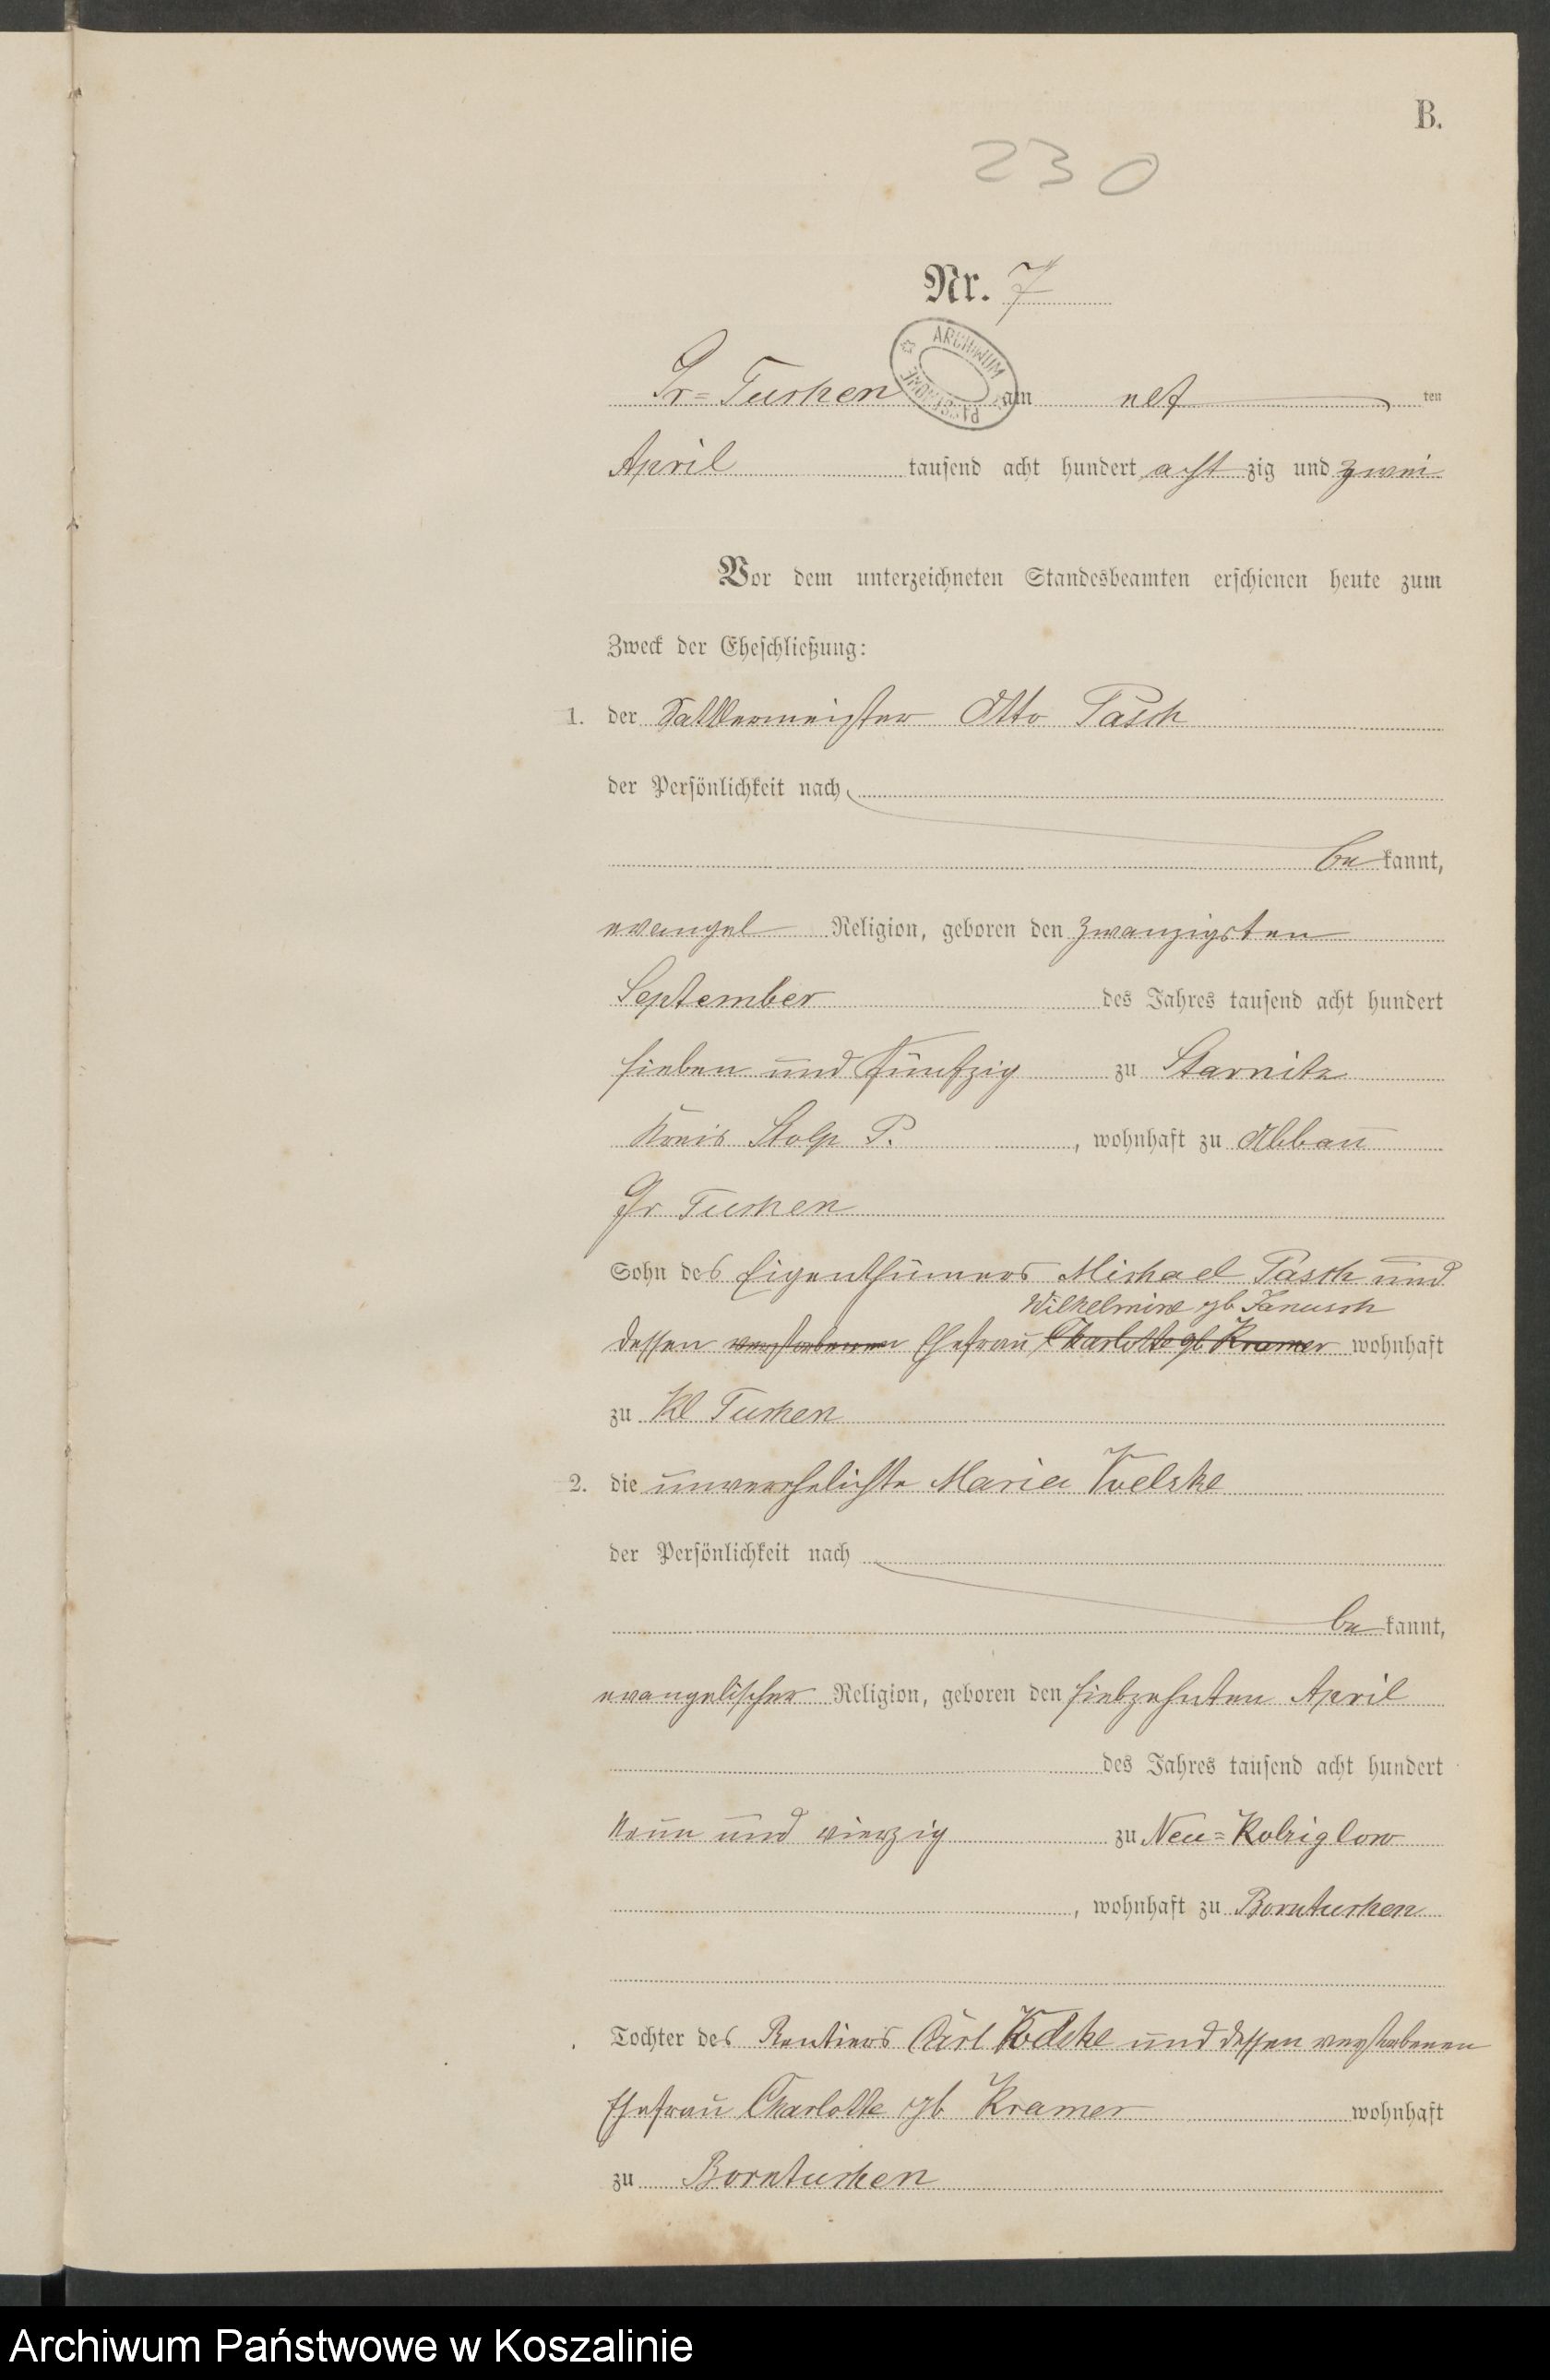 B.
230
Nr. 7
ARCHIWUM PAŃSTWOWE
Gr= Tuchen am elf ten
April tausend acht hundert acht zig und zwei
Vor dem unterzeichneten Standesbeamten erschienen heute zum
Zweck der Eheschließung:
1. der Sattlermeister Otto Pasch
der Persönlichkeit nach
be kannt,
evangel Religion, geboren den zwanzigsten
September des Jahres tausend acht hundert
sieben und fünfzig zu Starnitz
Kreis Stolp P. , wohnhaft zu Abbau
Gr Tuchen
Sohn des Eigenthümers Michael Pasch und
Wilhelmine gb Janusch
dessen verstorbenen Ehefrau Charlotte gb Kramer wohnhaft
zu Kl Tuchen
2. die unverehelichte Maria Voelzke
der Persönlichkeit nach
be kannt,
evangelischer Religion, geboren den siebzehnten April
des Jahres tausend acht hundert
neun und vierzig zu Neu= Kolziglow
, wohnhaft zu Borntuchen
Tochter des Rentiers Carl und dessen verstorbenen
Ehefrau Charlotte gb Kramer wohnhaft
zu Borntuchen
Archiwum Państwowe w Koszalinie